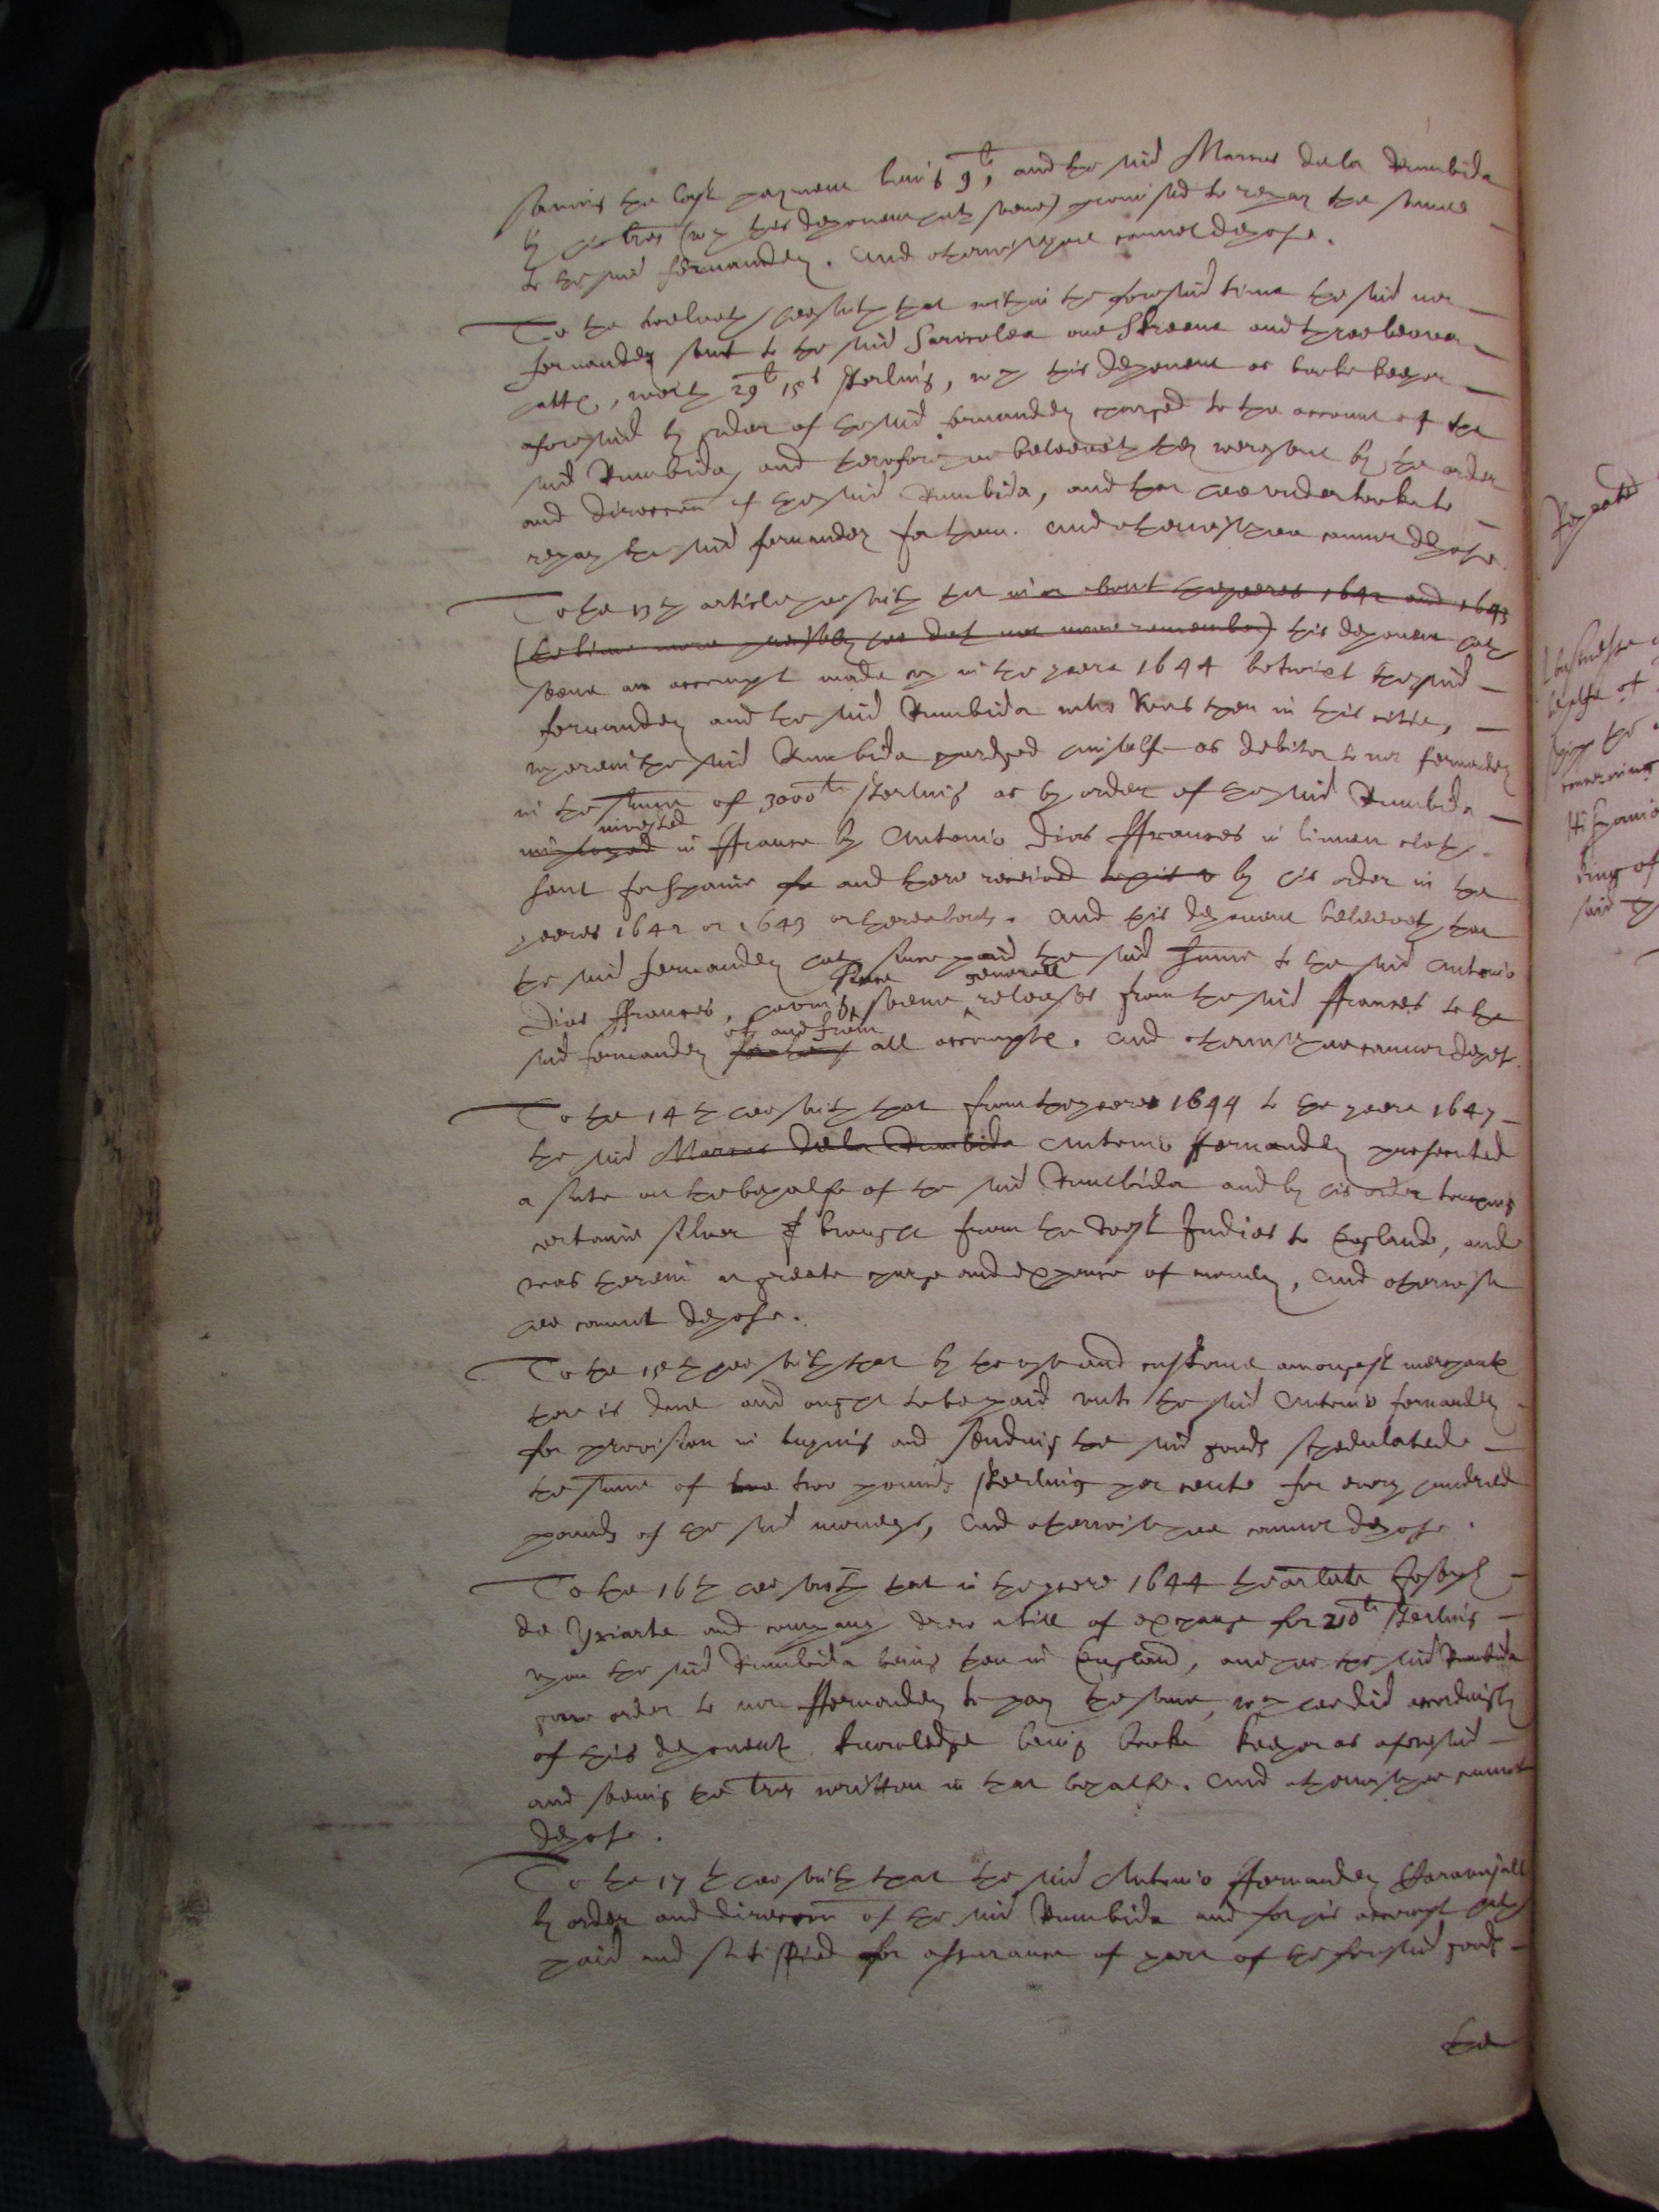 saving the last payment being 9li, and the said Marcus de la Rumbida
by his lres (wch this deponent hath seene) promised to repay the same
to the said Fernandez. And otherwise hee cannot depose.
To the twelveth hee saith that within the foresaid time the said mr
Fernandez sent to the said Saricolea one Skreene and three beaver
hatts, worth 29li 15s sterling, wch this deponent as booke keeper
aforesaid by order of the said Fernandez charged to the account of the
said Rumbida, and therefore hee beleeveth they were sent by the order
and direccon of the said Rumbida, and that hee undertooke to
repay the said Fernandez for them. And otherwise hee cannot depose.
To the 13th article hee saith that in or about the yeeres 1642 and 1643
(the time more precisely hee doth not now remember) this deponent hath
seene an accompt made up in the yeere 1644 betwixt the said
Fernandez and the said Rumbida who was then in this citie,
wherein the said Rumbida chardged himselfe as debitor to mr Fernandez
in the summe of 3000li sterling as by order of the said Rumbida
imployed invested in ffrance by Antonio Dias ffrances in linnen cloth
sent for Spaine and there received by his order in the
yeeres 1642 or 1643 or thereabouts. And this deponent beleeveth that
the said Fernandez hath since paid the said summe to the said Antonio
Dias ffrances, having since seene generall releases from the said ffrances to the
said Fernandez of and from all accompts. And otherwise hee cannot depose.
To the 14th hee saith that from the yeere 1644 to the yeere 1647
the said Marcus de la Rumbida Antonio Fernandez prosecuted
a suite on the behalfe of the said Rumbida and by his order touching
certaine silver brought from the West Indies to England, and
was therein at greate charge and expence of moneley, And otherwise
hee cannot depose.
To the 15th hee saith that by the use and custome amongst merchants
there is due and ought to be paid unto the said Antonio Fernandez
for provision in buying and sending the said goods schedulated
the summe of two two pounds sterling per cento for every hundred
pounds of the said moneys, And otherwise hee cannot depose.
To the 16th hee saith that in the yeere 1644 the arlate Joseph
de Yriarte and company drew a bill of exchange for 210li sterling
upon the said Rumbida being then in England, and hee the said Rumbida
gave order to mr Fernandez to pay the same, wch hee did accordingly
of this deponents knowledge being booke keeper as aforesaid
and seeing the lres written in that behalfe. And otherwise hee cannot
depose.
To the 17th hee saith that the said Antonio Fernandez Caravajall
by order and direccon of the said Rumbida and for his accompt hath
paid and satisfied for assurance of part of the foresaid goods
the